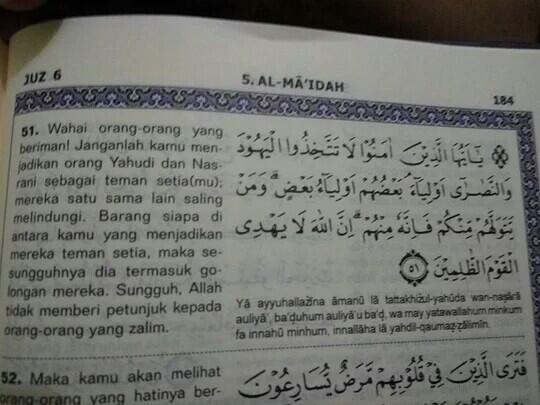 JUZ 6
5. AL-MĀ'IDAH
184
51. Wahai orang-orang yang
beriman! Janganlah kamu men-
jadikan orang Yahudi dan Nas-
rani sebagai teman setia(mu);
mereka satu sama lain saling
melindungi. Barang siapa di
antara kamu yang menjadikan
mereka teman setia, maka se-
sungguhnya dia termasuk go-
longan mereka. Sungguh, Allah
tidak memberi petunjuk kepada
orang-orang yang zalim.
يٰٓاَيُّهَا الَّذِيْنَ اٰمَنُوْا لَا تَتَّخِذُوا الْيَهُوْدَ
وَالنَّصٰرٰٓى اَوْلِيَاۤءَ بَعْضُهُمْ اَوْلِيَاۤءُ بَعْضٍۗ وَمَنْ
يَّتَوَلَّهُمْ مِّنْكُمْ فَاِنَّهٗ مِنْهُمْۗ اِنَّ اللّٰهَ لَا يَهْدِى
الْقَوْمَ الظّٰلِمِيْنَ ٥١
Yā ayyuhallażīna āmanū lā tattakhiżul-yahūda wan-naṣārā
auliyā', ba'ḍuhum auliyā'u ba'ḍ, wa may yatawallahum minkum
fa innahū minhum, innallāha lā yahdil-qaumaẓ-ẓālimīn.
52. Maka kamu akan melihat
orang-orang yang hatinya ber-
فَتَرَى الَّذِيْنَ فِيْ قُلُوْبِهِمْ مَّرَضٌ يُّسَارِعُوْنَ